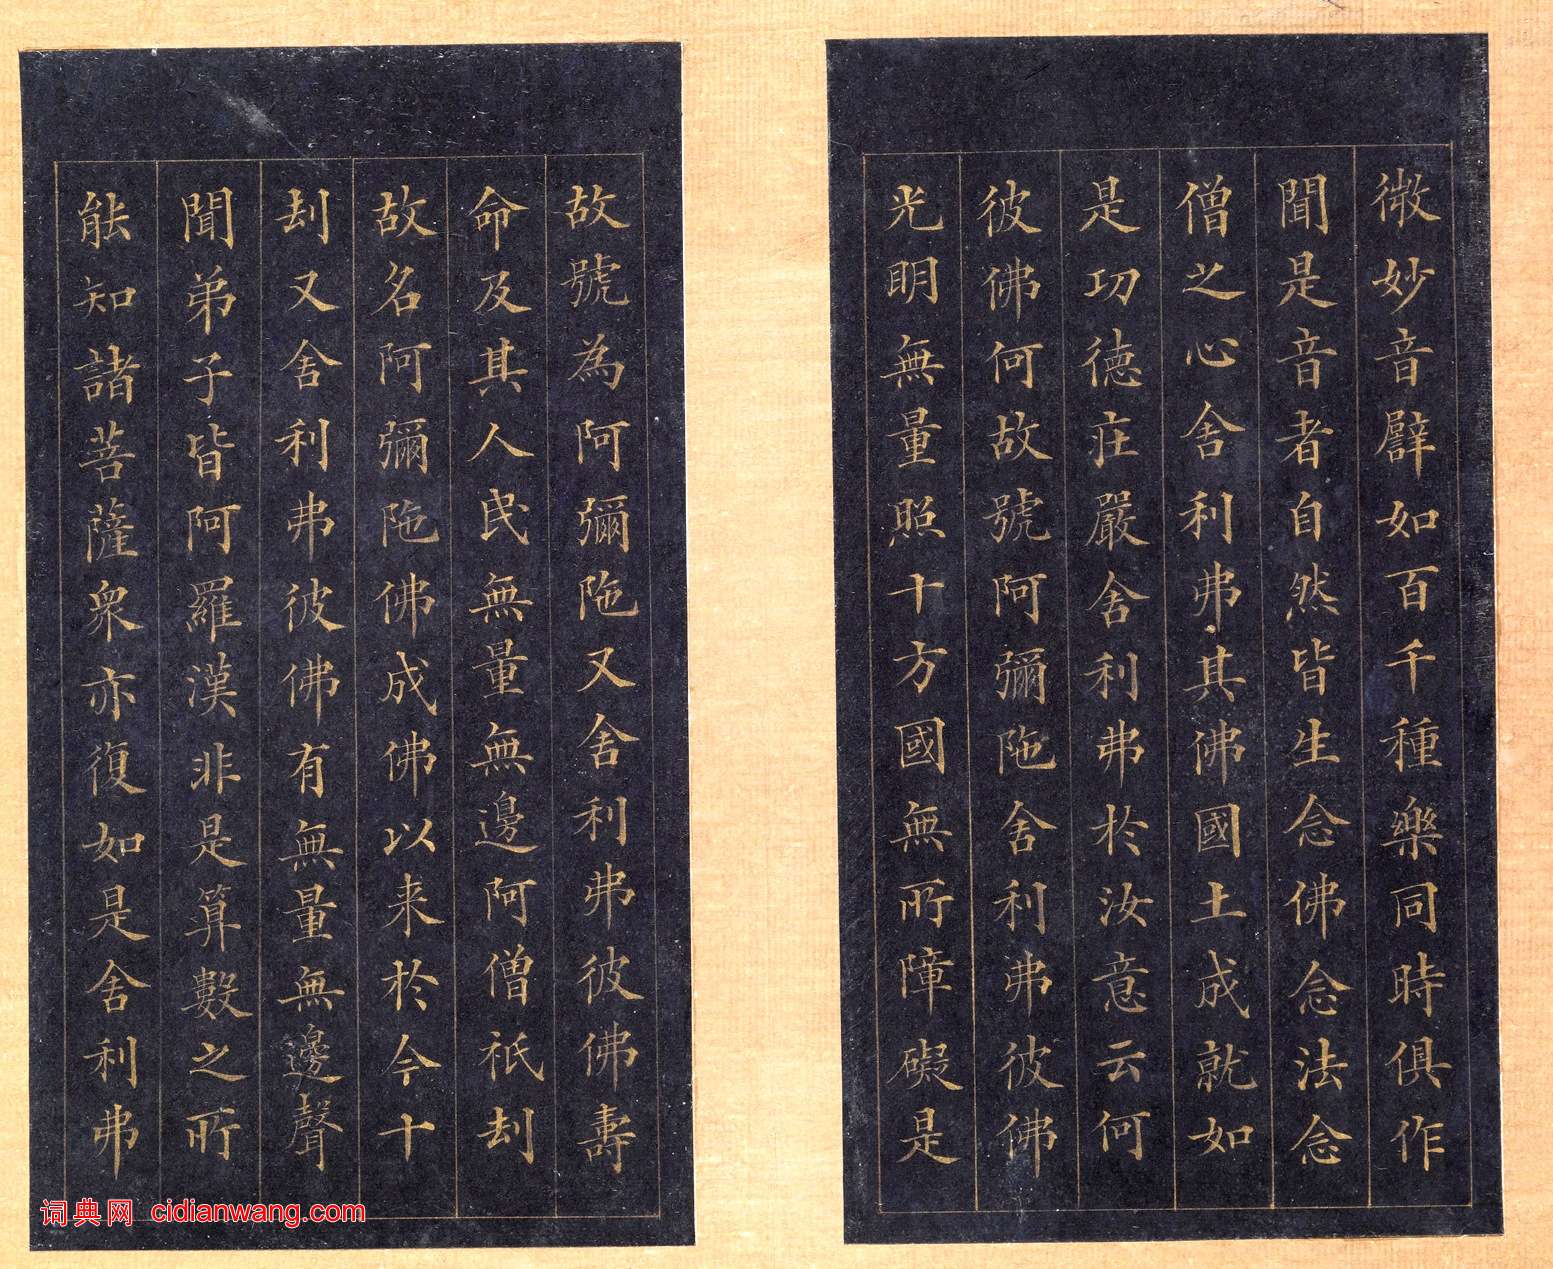 微妙音譬如百千種樂同時俱作
聞是音者自然皆生念佛念法念
僧之心舍利弗其佛國土成就如
是功德莊嚴舍利弗於汝意云何
彼佛何故號阿彌陁舍利弗彼佛
光明無量照十方國無所障礙是
故號為阿彌陁又舍利弗彼佛壽
命及其人民無量無邊阿僧祇刦
故名阿彌陁佛成佛以来於今十
刦又舍利弗彼佛有無量無邊聲
聞弟子皆阿羅漢非是算數之所
能知諸菩薩衆亦復如是舍利弗
词典网 cidianwang.com